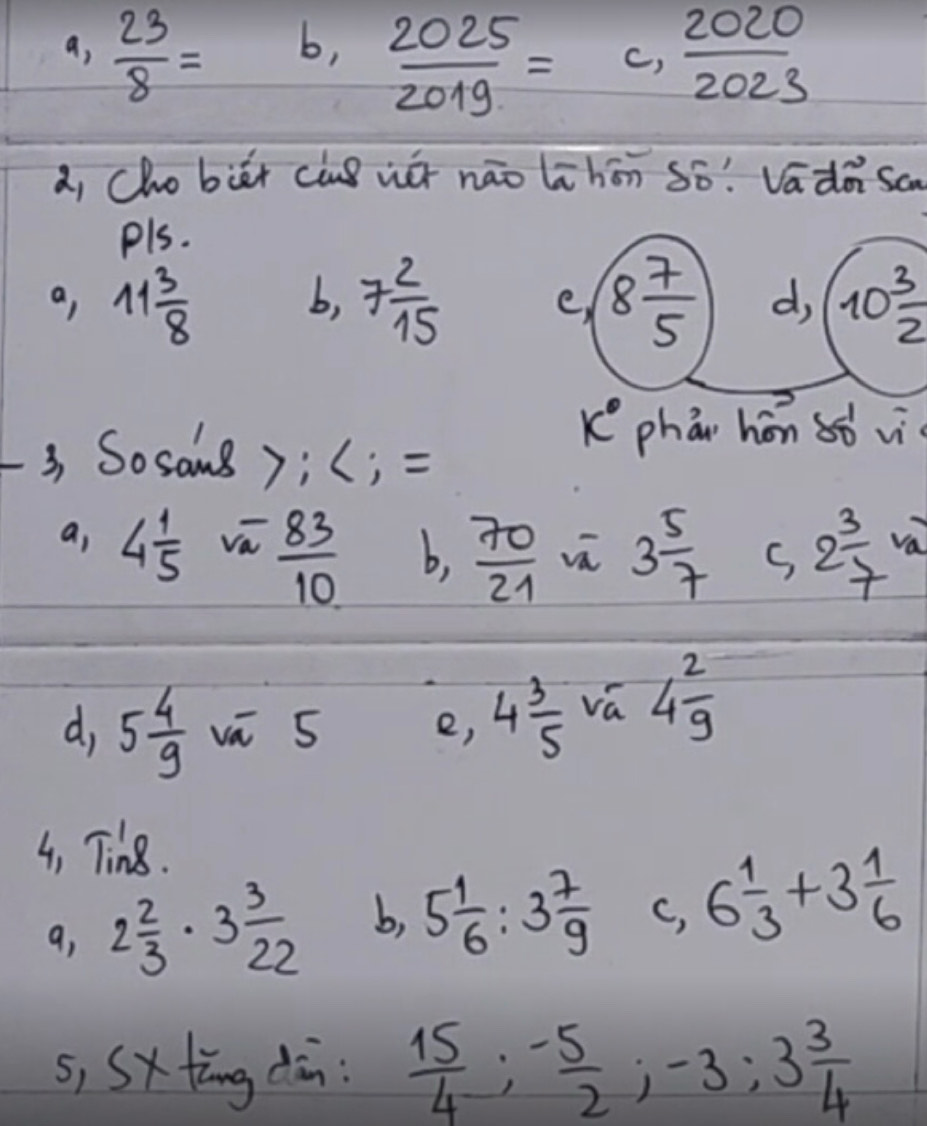 a, 23/8 = b, 2025/2019 = c, 2020/2023
2, Cho biết cách viết nào là hỗn số? Và đổi
p/s.
a, 11 3/8 b, 7 2/15 c, 8 7/5 d, 10 3/2
K° phải hỗn số vì
3, So sánh >; <; =
a, 4 1/5 và 83/10 b, 70/21 và 3 5/7 c, 2 3/7 và
d, 5 4/9 và 5 e, 4 3/5 và 4 2/9
4, Tính.
a, 2 2/3 . 3 3/22 b, 5 1/6 : 3 7/9 c, 6 1/3 + 3 1/6
5, SX tăng dần: 15/4 ; -5/2 ; -3 ; 3 3/4